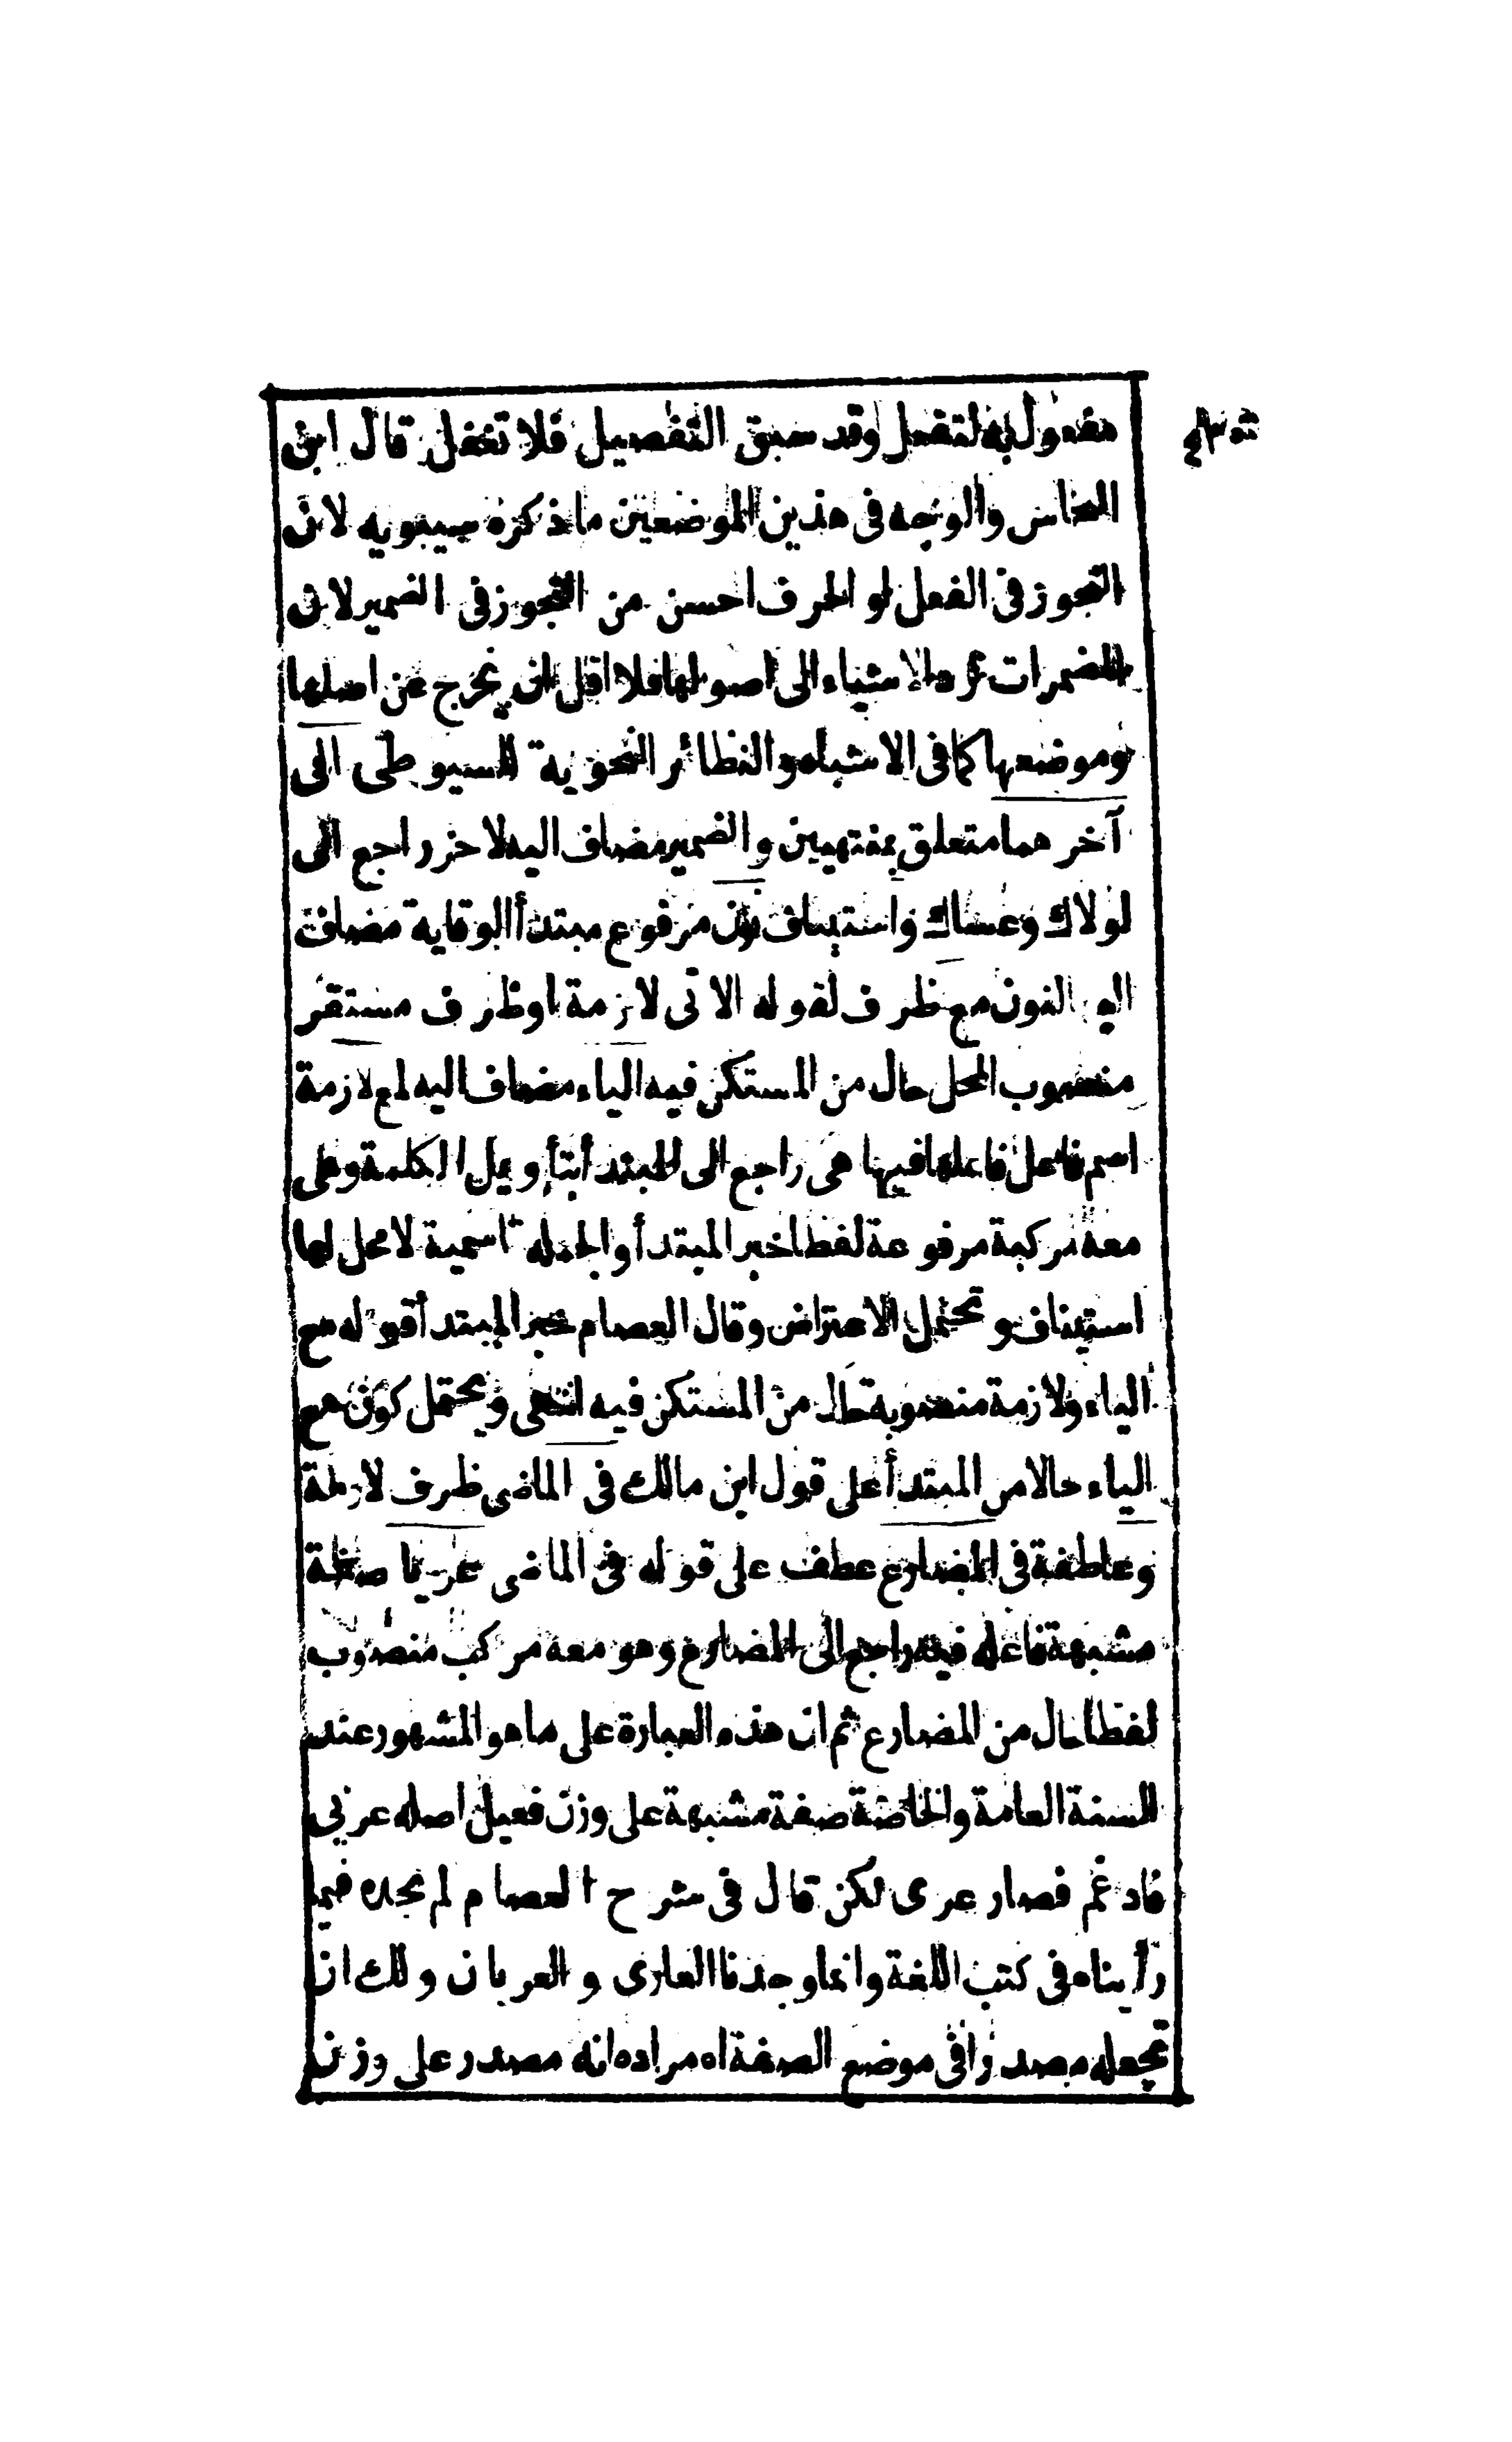 مفعول به لتفعل وقد سبق التفصيل فلا تغفل قال ابن
النحاس والوجه فى هذين الموضعين ما ذكره سيبويه لان
التجوز فى الفعل او الحرف احسن من التجوز فى الضمير لان
المضمرات ترد الاشياء الى اصولها فلا اقل ان يخرج عن اصلها
وموضعها كما فى الاشباه والنظائر النحوية للسيوطى الى
آخر هما متعلق بمنتهيين والضمير مضاف اليه لاخر راجع الى
لولاك وعساك واستيناف نون مرفوع مبتدأ الوقاية مضاف
اليه النون مع ظرف لقوله الاتى لازمة او ظرف مستقر
منصوب المحل حال من المستكن فيه الياء مضاف اليه لمع لازمة
اسم فاعل فاعلها فيها هى راجع الى المبتدأ بتأويل الكلمة وهى
معه مركبة مرفوعة لفظا خبر المبتدأ والجمله اسمية لا محل لها
استيناف وتحتمل الاعتراض وقال العصام خبر المبتدأ قوله مع
الياء ولازمة منصوبة حال من المستكن فيه انتهى ويحتمل كون مع
الياء حالا من المبتدأ على قول ابن مالك فى الماضى ظرف لازمة
وعاطفة فى المضارع عطف على قوله فى الماضى عريا صفة
مشبهة فاعله فيه راجع الى المضارع وهو معه مركب منصوب
لفظا حال من المضارع ثم ان هذه العبارة على ما هو المشهور عند
السنة العامة والخاصة صفة مشبهة على وزن فعيل اصله عريى
فادغم فصار عرى لكن قال فى شرح العصام لم نجده فيما
رأيناه فى كتب اللغة وانما وجدنا العارى والعريان ولك ان
تجعله مصدرا فى موضع الصفة اه مراده انه مصدر على وزن